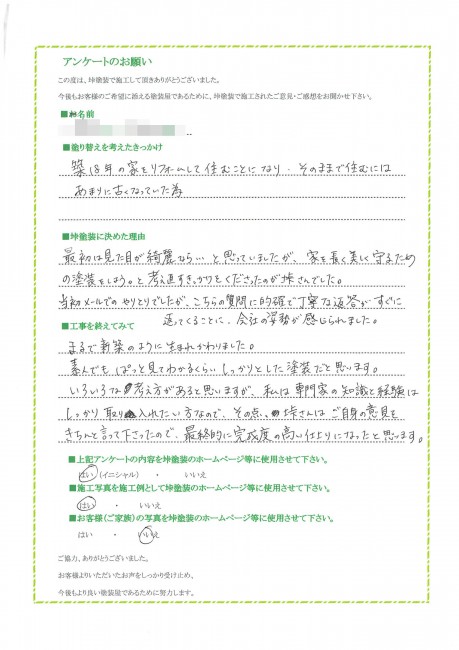 アンケートのお願い
この度は、垰塗装で施工して頂きありがとうございました。
今後もお客様のご希望に添える塗装屋であるために、垰塗装で施工されたご意見・ご感想をお聞かせ下さい。
■お名前
■塗り替えを考えたきっかけ
築18年の家をリフォームして住むことになり、そのままで住むには
あまりに古くなっていた為
■垰塗装に決めた理由
最初は見た目が綺麗なら…と思っていましたが、家を長く美しく守るため
の塗装をしようと考え直すきっかけをくださったのが垰さんでした。
当初メールでのやりとりでしたが、こちらの質問に的確で丁寧な返答がすぐに
返ってくることに、会社の姿勢が感じられました。
■工事を終えてみて
まるで新築のように生まれかわりました。
素人でもぱっと見てわかるくらいしっかりとした塗装だと思います。
いろいろな考え方があると思いますが、私は専門家の知識と経験は
しっかり取り入れたい方なので、その点、垰さんはご自身の意見を
きちんと言って下さったので、最終的に完成度の高い仕上りになったと思います。
■上記アンケートの内容を垰塗装のホームページ等に使用させて下さい。
はい(イニシャル) ・ いいえ
■施工写真を施工例として垰塗装のホームページ等に使用させて下さい。
はい ・ いいえ
■お客様(ご家族)の写真を垰塗装のホームページ等に使用させて下さい。
はい ・ いいえ
ご協力、ありがとうございました。
お客様よりいただいたお声をしっかり受け止め、
今後もより良い塗装屋であるために努力します。